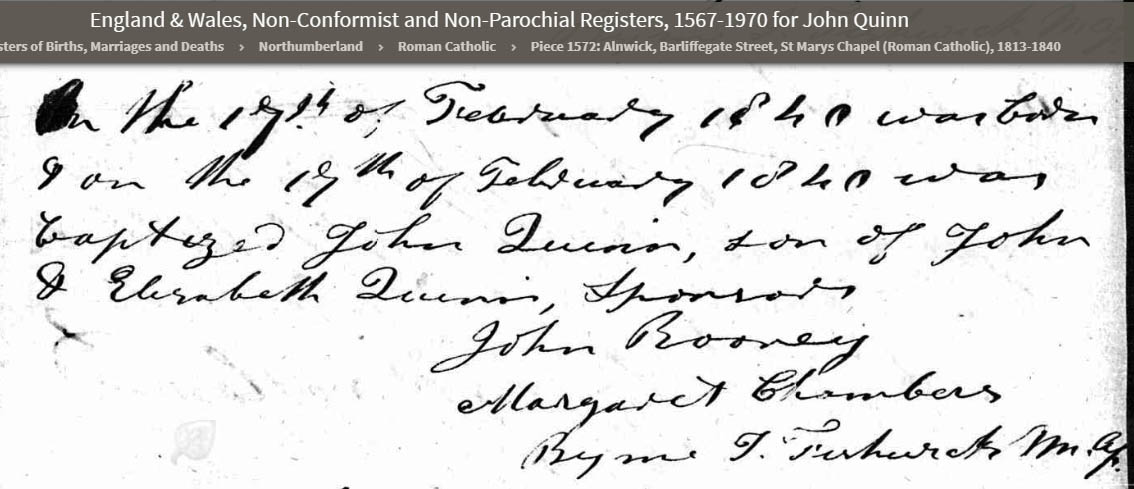 England & Wales, Non-Conformist and Non-Parochial Registers, 1567-1970 for John Quinn
sters of Births, Marriages and Deaths › Northumberland › Roman Catholic › Piece 1572: Alnwick, Barliffegate Street, St Marys Chapel (Roman Catholic), 1813-1840
On the 17th of February 1840 was born
& on the 19th of February 1840 was
baptized John Quinn, son of John
& Elizabeth Quinn, Sponsors
John Rooney
Margaret Chambers
By me T.